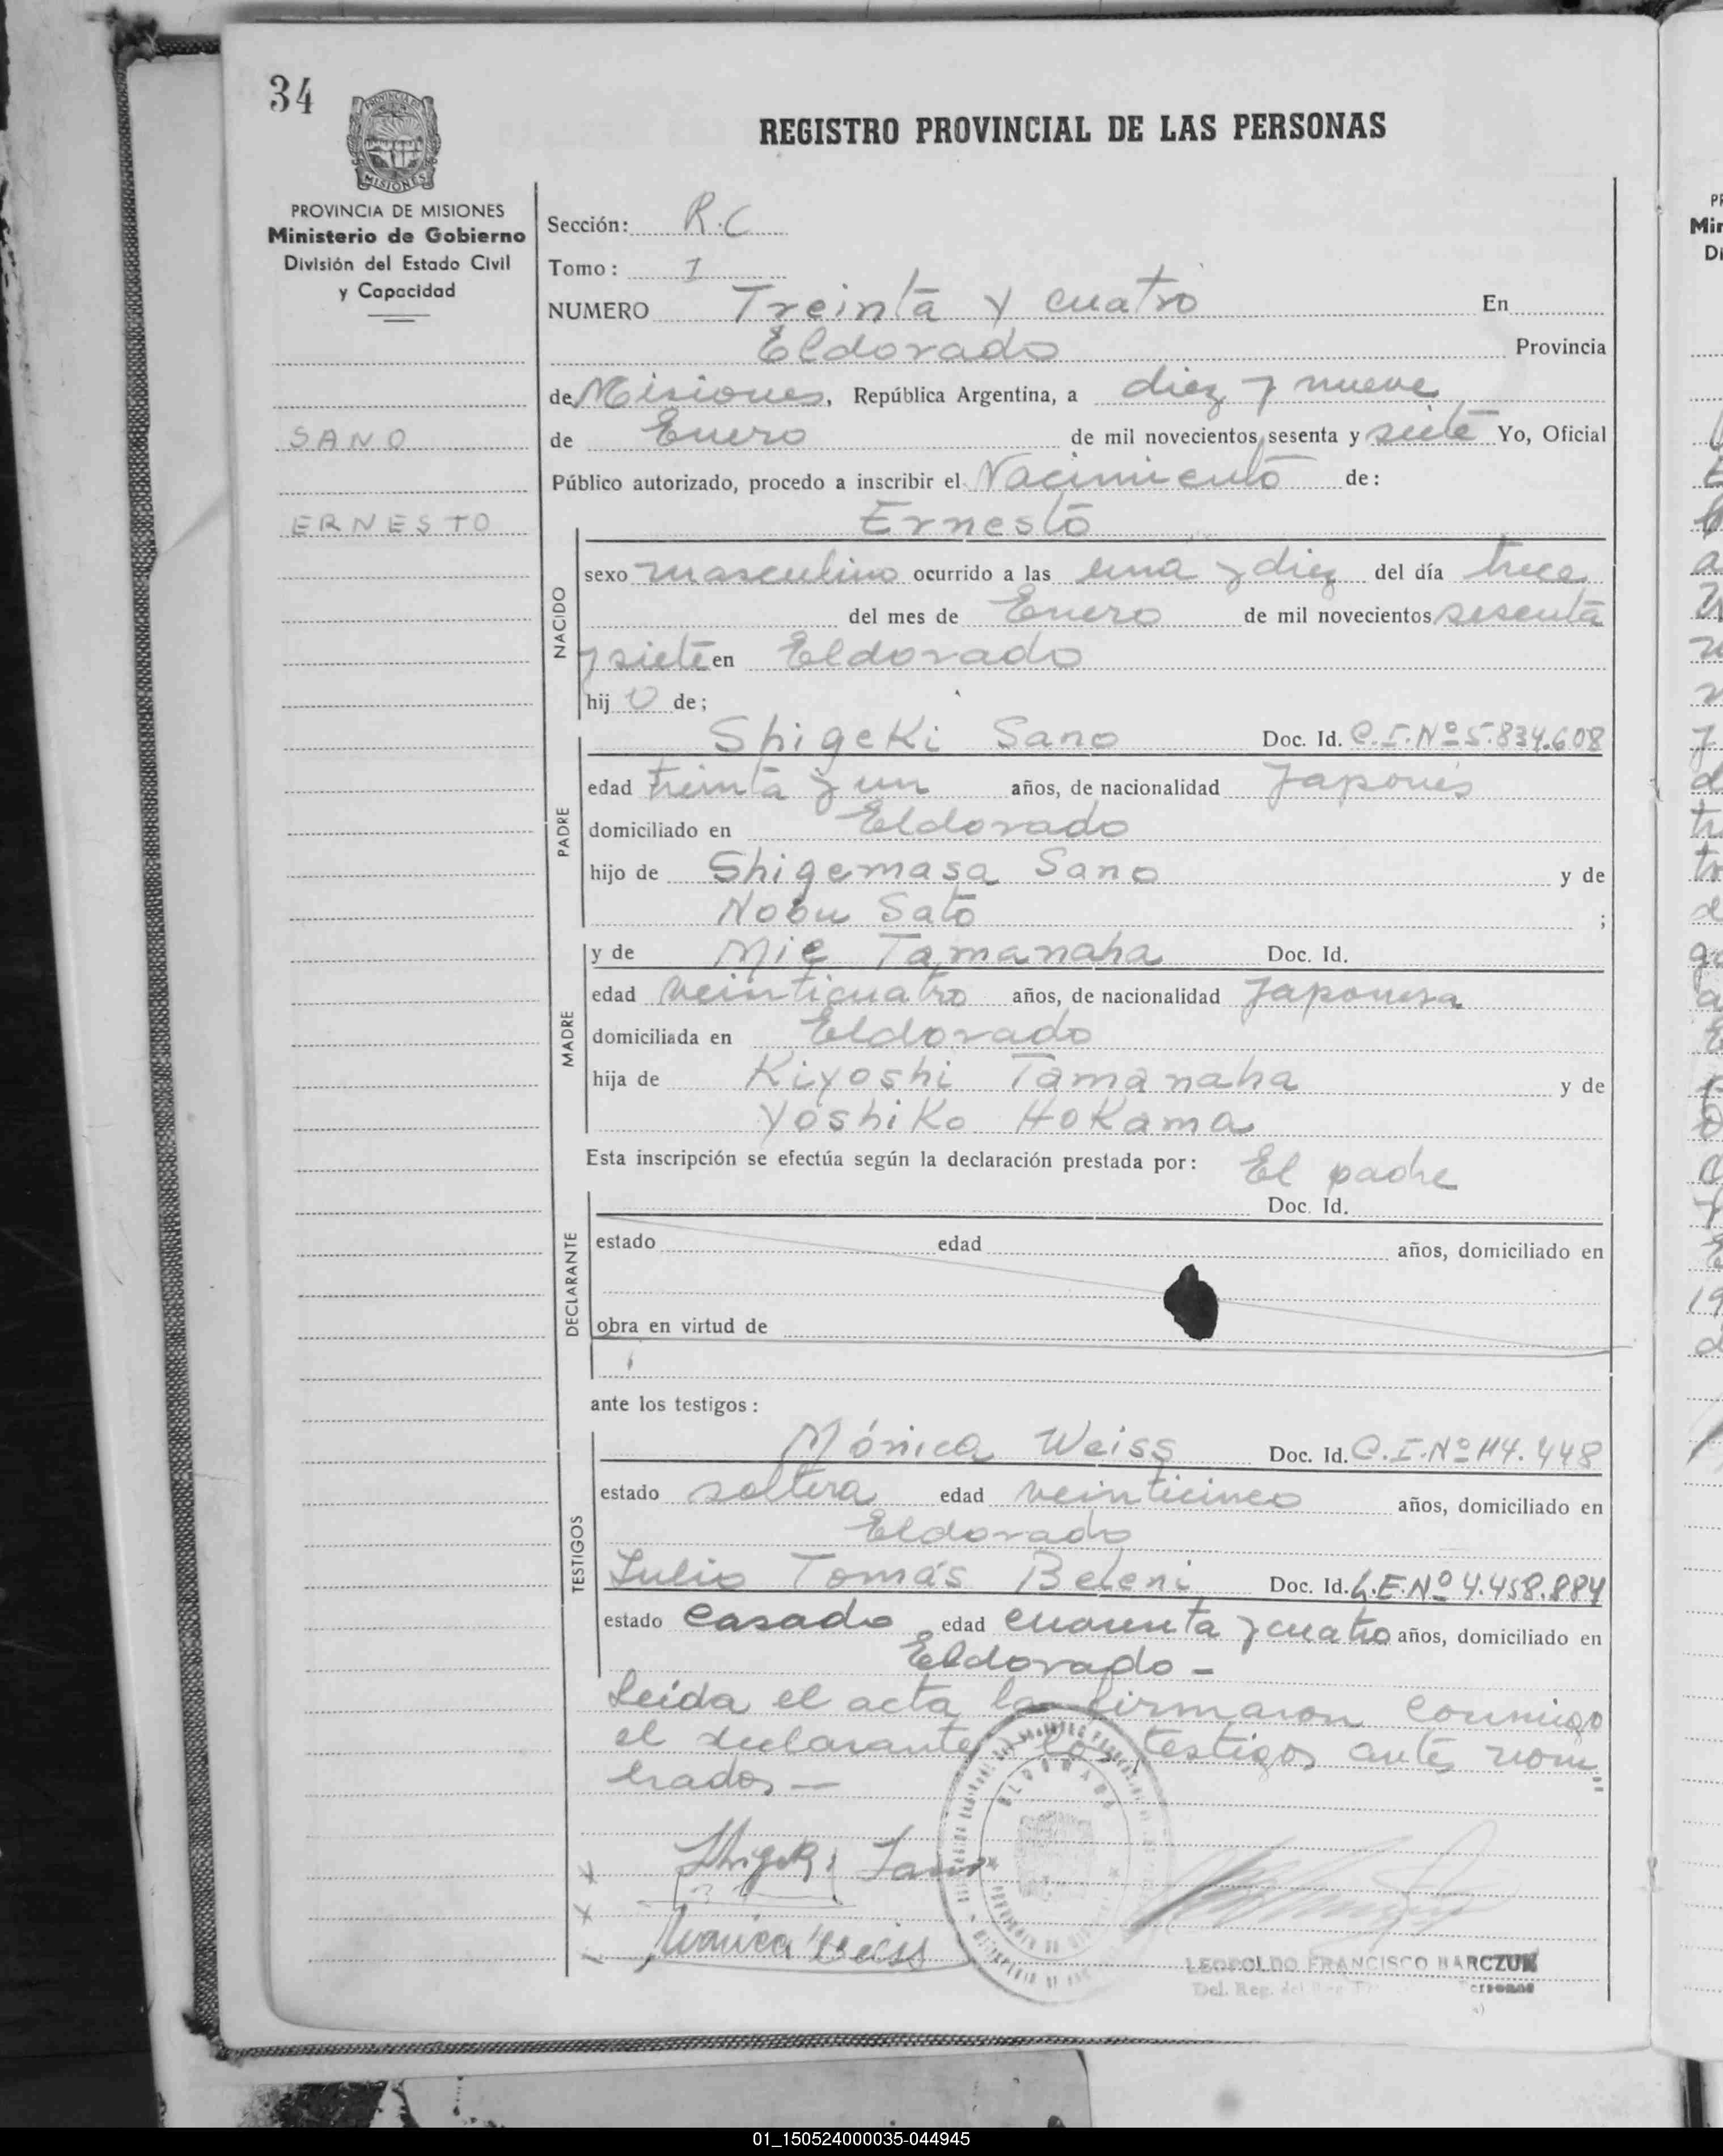 34
REGISTRO PROVINCIAL DE LAS PERSONAS
PROVINCIA DE MISIONES
MISIONES
PROVINCIA DE MISIONES
Ministerio de Gobierno
División del Estado Civil
y Capacidad
SANO
ERNESTO
Sección: R.C
Tomo: I
NUMERO Treinta y cuatro En
Eldorado Provincia
de Misiones, República Argentina, a diez y nueve
de Enero de mil novecientos sesenta y siete Yo, Oficial
Público autorizado, procedo a inscribir el Nacimiento de:
Ernesto
NACIDO
sexo masculino ocurrido a las una y diez del día trece
del mes de Enero de mil novecientos sesenta
y siete en Eldorado
hijo de;
PADRE
Shigeki Sano Doc. Id. C.I.Nº 5.834.608
edad treinta y un años, de nacionalidad Japonés
domiciliado en Eldorado
hijo de Shigemasa Sano y de
Nobu Sato ;
MADRE
y de Mie Tamanaha Doc. Id.
edad veinticuatro años, de nacionalidad Japonesa
domiciliada en Eldorado
hija de Kiyoshi Tamanaha y de
Yoshiko Hokama
Esta inscripción se efectúa según la declaración prestada por: El padre
DECLARANTE
Doc. Id.
estado edad años, domiciliado en
obra en virtud de
ante los testigos:
TESTIGOS
Mónica Weiss Doc. Id. C.I.Nº 114.448
estado soltera edad veinticinco años, domiciliado en
Eldorado
Julio Tomás Beleni Doc. Id. L.E.Nº 4.458.884
estado casado edad cuarenta y cuatro años, domiciliado en
Eldorado -
Leída el acta la firmaron conmigo
el declarante y los testigos antes nom-
brados —
ELDORADO
Shigeki Sano
Mónica Weiss
LEOPOLDO FRANCISCO BARCZUK
Del. Reg. del
01_150524000035-044945